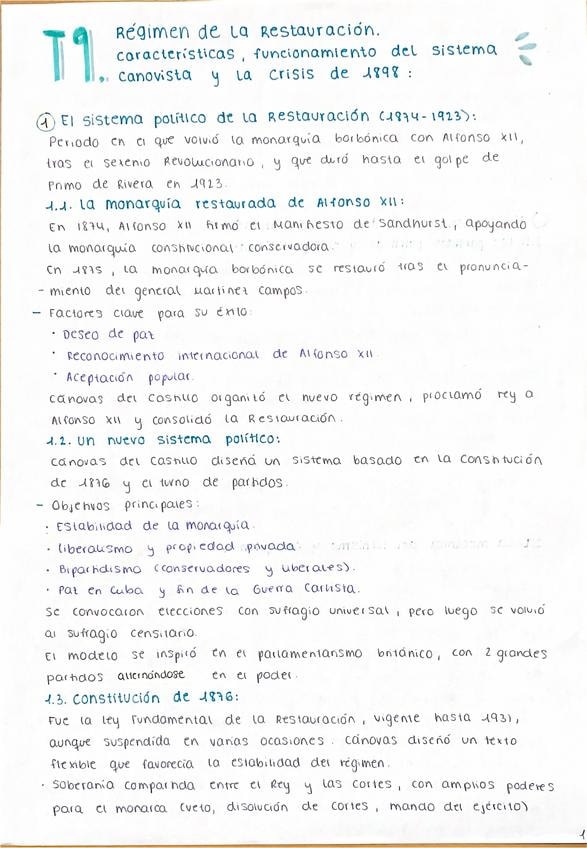 T9. Régimen de la Restauración.
características, funcionamiento del sistema
canovista y la crisis de 1898:
① El sistema político de la Restauración (1874-1923):
Periodo en el que volvió la monarquía borbónica con Alfonso XII,
tras el sexenio Revolucionario, y que duró hasta el golpe de
Primo de Rivera en 1923.
1.1. La monarquía restaurada de Alfonso XII:
En 1874, Alfonso XII firmó el Manifiesto de Sandhurst, apoyando
la monarquía constitucional conservadora.
En 1875, la monarquía borbónica se restauró tras el pronuncia-
- miento del general Martínez Campos.
- Factores clave para su éxito:
· Deseo de paz
· Reconocimiento internacional de Alfonso XII
· Aceptación popular.
Cánovas del Castillo organizó el nuevo régimen, proclamó rey a
Alfonso XII y consolidó la Restauración.
1.2. Un nuevo sistema político:
Cánovas del Castillo diseñá un sistema basado en la Constitución
de 1876 y el turno de partidos.
- Objetivos principales:
· Estabilidad de la monarquía.
· liberalismo y propiedad privada
· Bipartidismo (conservadores y liberales).
· Paz en Cuba y fin de la Guerra Carlista.
Se convocaron elecciones con sufragio universal, pero luego se volvió
al sufragio censitario.
El modelo se inspiró en el parlamentarismo británico, con 2 grandes
partidos alternándose en el poder.
1.3. Constitución de 1876:
Fue la ley fundamental de la Restauración, vigente hasta 1931,
aunque suspendida en varias ocasiones. Cánovas diseñó un texto
flexible que favorecía la estabilidad del régimen.
· Soberanía compartida entre el Rey y las Cortes, con amplios poderes
para el monarca (veto, disolución de cortes, mando del ejército)
1